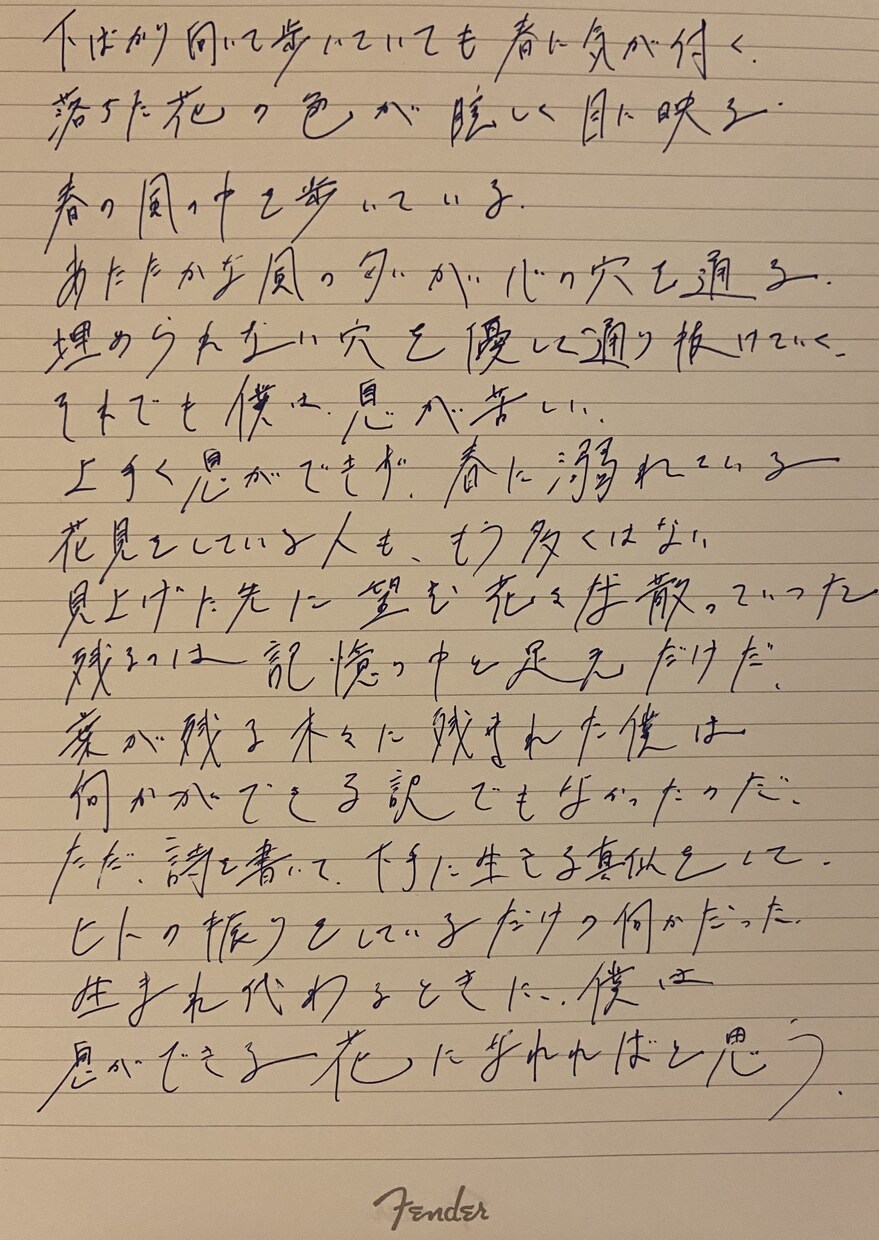 下ばかり向いて歩いていても春に気が付く.
落ちた花の色が眩しく目に映る.
春の風の中を歩いている.
あたたかな風の匂いが心の穴を通る.
埋められない穴を優しく通り抜けていく.
それでも僕は.息が苦しい.
上手く息ができず.春に溺れている
花見をしている人も、もう多くはない
見上げた先に望む花々は散っていった
残るのは記憶の中と足元だけだ.
葉が残る木々に残された僕は
何かができる訳でもなかったのだ.
ただ.詩を書いて.下手に生きる真似をして.
ヒトの振りをしているだけの何かだった.
生まれ代わるときに..僕は
息ができる花になれればと思う.
Fender